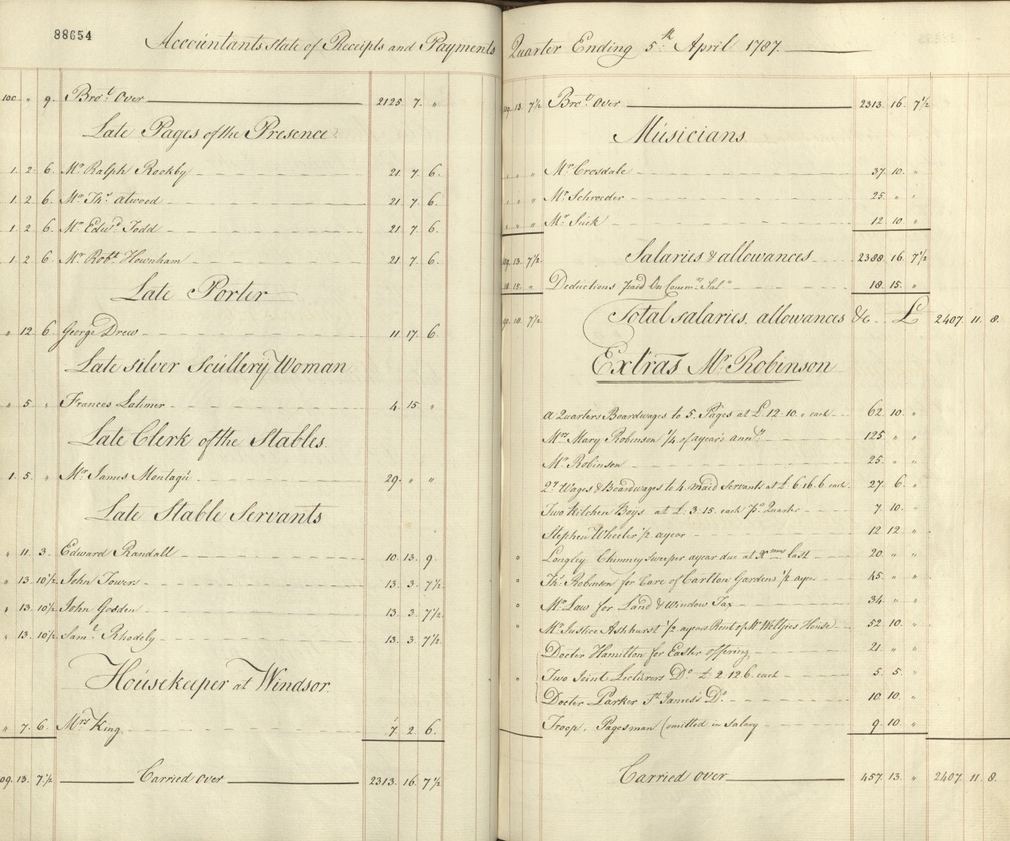 88654
Accountants State of Receipts and Payments
100 " 9 Bro.t Over 2125 7 "
Late Pages of the Presence
1 2 6 Mr. Ralph Rookby 21 7 6
1 2 6 Mr. Tho.s Atwood 21 7 6
1 2 6 Mr. Edw.d Todd 21 7 6
1 2 6 Mr. Rob.t Hownham 21 7 6
Late Porter
" 12 6 George Drew 11 17 6
Late Silver Scullery Woman
" 5 " Frances Latimer 4 15 "
Late Clerk of the Stables
1 5 " Mr. James Montagu 29 " "
Late Stable Servants
" 11 3 Edward Randall 10 13 9
" 13 10½ John Towers 13 3 7½
" 13 10½ John Godden 13 3 7½
" 13 10½ Sam.l Rhodely 13 3 7½
Housekeeper at Windsor
" 7 6 Mrs. King 7 2 6
09 13 7½ Carried over 2313 16 7½
Quarter Ending 5th April 1787
09 13 7½ Bro.t Over 2313 16 7½
Musicians
" " " Mr. Crosdale 37 10 "
" " " Mr. Schroeder 25 " "
" " " Mr. Suck 12 10 "
09 13 7½ Salaries & allowances 2388 16 7½
18 15 " Deductions paid 18 15 "
90 18 7½ Total salaries, allowances &c £ 2407 11 8
Extras Mr. Robinson
a Quarters Boardwages to 5 Pages at £ 12 10 " each 62 10 "
Mrs. Mary Robinson ¼ of a years ann.y 125 " "
Mr. Robinson 25 " "
Qr. Wages & Boardwages to 4 maid Servants at £ 6 16 6 each 27 6 "
Two Kitchen Boys at £ 3 15 each p.r Quarter 7 10 "
Stephen Wheeler ½ a year 12 12 "
Longley Chimney Sweeper a year due at Xmas last 20 " "
Tho.s Robinson for Care of Carlton Gardens ½ a year 45 " "
Mr. Law for Land & Window Tax 34 " "
Mr. Justice Ashhurst ½ a years Rent of Mr. Weltjies House 52 10 "
Doctor Hamilton for Easter offering 21 " "
Two Joint Lecturers Do. £ 2 12 6 each 5 5 "
Doctor Parker St. James's Do. 10 10 "
Troop, Pagesman (omitted in Salary 9 10 "
Carried over 457 13 " 2407 11 8